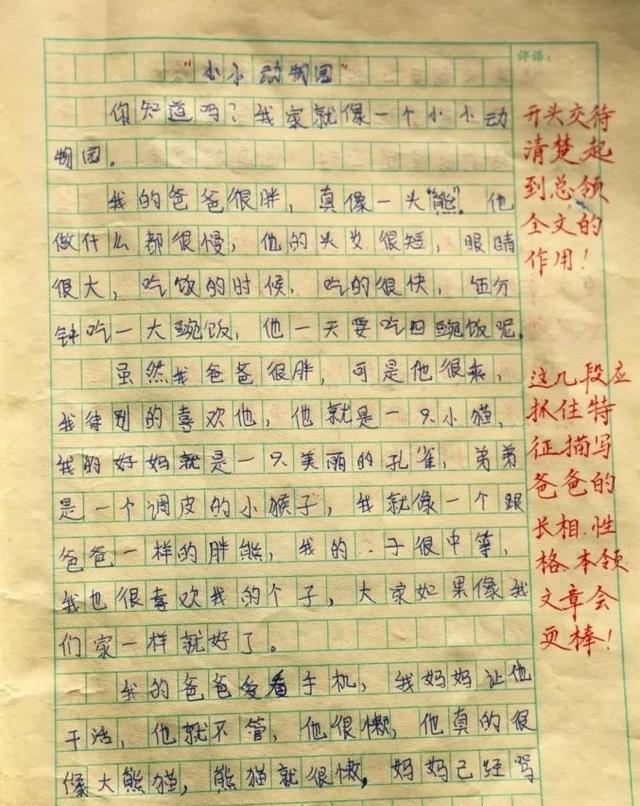 评语：
"小小动物园"
你知道吗？我家就像一个小小动
物园。
我的爸爸很胖，真像一头"熊"。他
做什么都很慢，他的头发很短，眼睛
很大，吃饭的时候，吃的很快，五分
钟吃一大碗饭，他一天要吃四碗饭呢。
虽然我爸爸很胖，可是他很亲，
我待别的喜欢他，他就是一只小猫，
我的好妈就是一只美丽的孔雀，弟弟
是一个调皮的小猴子，我就像一个跟
爸爸一样的胖熊，我的子很中等，
我也很喜欢我的个子，大家如果像我
们家一样就好了。
我的爸爸爱看手机，我妈妈让他
干活，他就不管，他很懒，他真的很
像大熊猫，熊猫就很懒，妈妈已经骂
开头交待
清楚起
到总领
全文的
作用！
这几段应
抓住特
征描写
爸爸的
长相、性
格、本领
文章会
更棒！